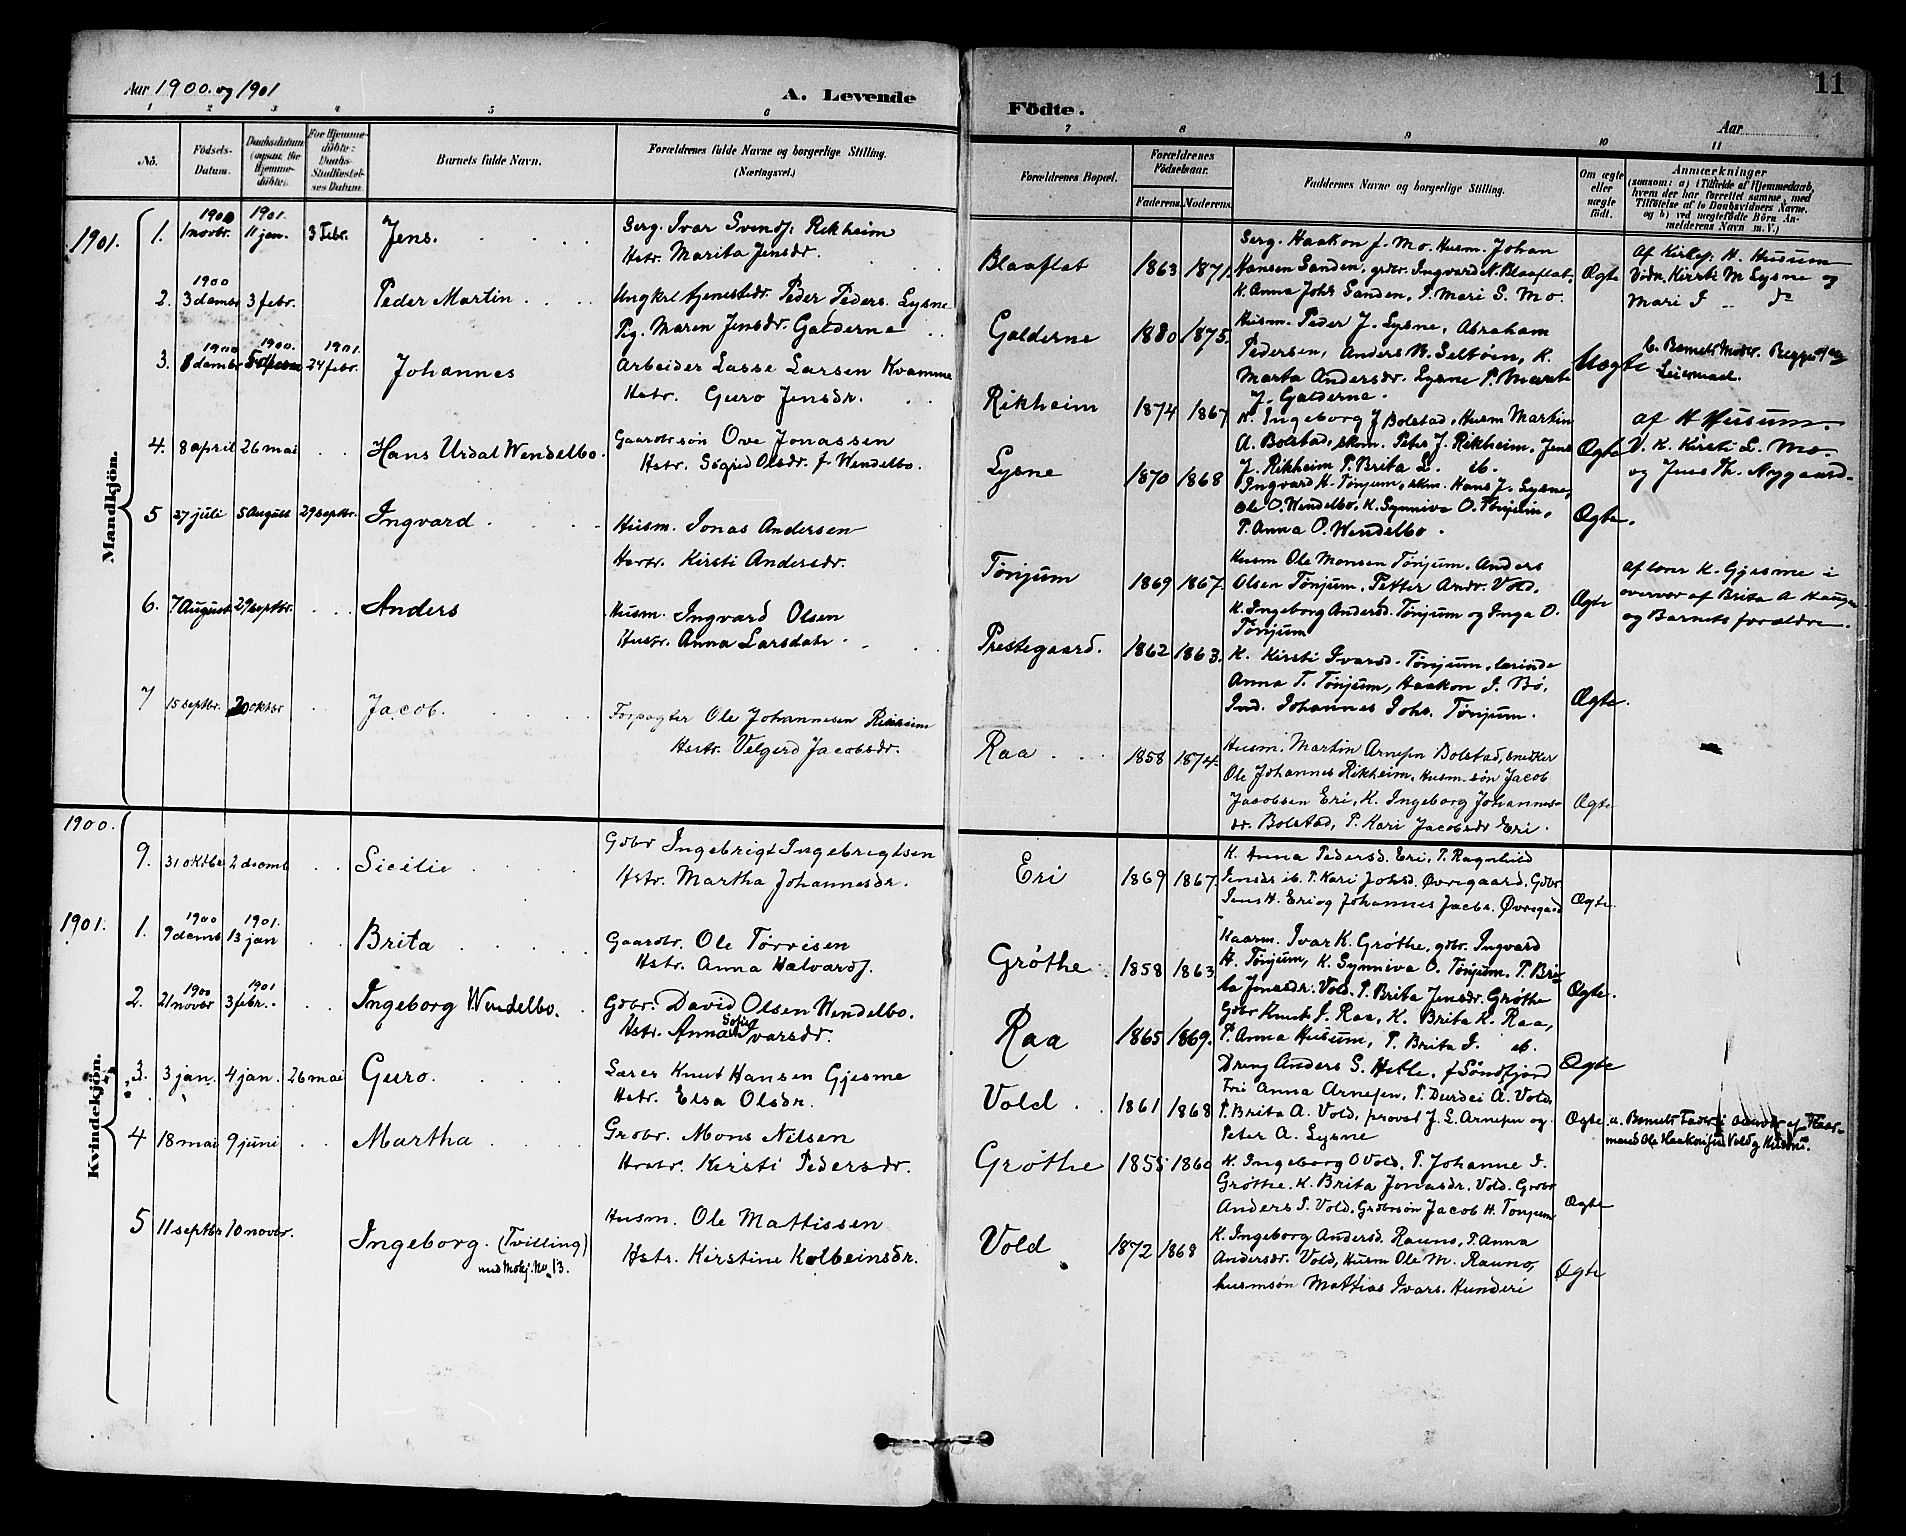 Aar 1900. og 1901
A. Levende
Födte.
11
Aar
1 2 3 4 5 6
7 8 9 10 11
No.
Födsels-
Datum.
Daabsdatum
(ogsaa for
Hjemme-
döbte).
For Hjemme-
döbte:
Daabs-
Stadfæstel-
ses Datum.
Barnets fulde Navn.
Forældrenes fulde Navne og borgerlige Stilling.
(Næringsvei.)
Forældrenes Bopæl.
Forældrenes
Födselsaar.
Faderens. Moderens.
Faddernes Navne og borgerlige Stilling.
Om ægte
eller
uægte
födt.
Anmærkninger
(saasom: a) i Tilfælde af Hjemmedaab,
hvem der har forrettet samme, med
Tilföielse af to Daabsvidners Navne,
og b) ved uægtefödte Börn An-
melderens Navn m. V.)
Mandkjön.
1901.
1. 1900 1 novbr. 1901. 11 jan. 3 Febr. Jens.
Serg. Ivar Svends. Rikheim
Hstr. Marita Jensdr.
Blaaflat 1863 1871.
Serg. Haakon J. Mo. Husm. Johan
Hansen Sanden, grdbr. Ingvard N. Blaaflat,
K. Anna Johs Sanden, P. Mari S. Mo.
Ægte
Af Kirkes. H. Husum
Vidn. Kirsti M Lysne og
Mari I — do
2. 1900 3 dambr 3 febr. Peder Martin
Ungkrl tjenestedr. Peder Peders. Lysne
Pig. Maren Jensdr. Galderne
Galderne 1880 1875.
Husm. Peder J. Lysne, Abraham
Pedersen, Anders N. Seltøen, K.
Marta Andersdr. Lysne P. Marta
J. Galderne.
Uægte
b. Barnets Moder.
Leiermaal.
3. 1900 8 dambr 1900. 1901. 24 febr. Johannes
Arbeider Lasse Larsen Kvamme
Hstr. Guro Jensdr.
Rikheim 1874 1867
K. Ingeborg J Bolstad, Husm Martin
A. Bolstad, skom. Peter J. Rikheim, Jens
J. Rikheim P. Brita L. ib.
Ægte
af H Husum.
V. K. Kirsti L. Mo.
og Jens Th. Nygaard.
4. 8 april 26 mai Hans Urdal Wendelbo.
Gaardbrsön Ove Jonassen
Hstr. Sögjed Olsdr. f. Wendelbo.
Lysne 1870 1868
Ingvard H. Tønjum, skm. Hans J. Lysne,
Ole O. Wendelbo, K. Synniva O. Tønjum,
P. Anna O. Wendelbo.
Ægte.
5 27 juli 5 August 29 septbr. Ingvard
Husm. Jonas Andersen
Hustr. Kirsti Andersdr.
Tønjum 1869 1867.
Husm Ole Monsen Tønjum, Anders
Olsen Tønjum, Petter Andr. Vold,
K. Ingeborg Andersd. Tønjum og Inga O.
Tønjum
Ægte
af lærer K. Gjesme i
overvær af Brita A Haugen
og Barnets forældre.
6. 7 August 29 septbr. Anders
Husm. Ingvard Olsen
Hustr. Anna Larsdatr.
Prestegaard. 1862 1863.
K. Kirsti Ivarsd. Tønjum, lærinde
Anna T. Tønjum, Haakon J. Bö,
Ind. Johannes Johs. Tønjum.
Ægte.
7 15 septbr. 20 oktbr Jacob.
Forpagter Ole Johannesen Rikheim
Hstr. Velgerd Jacobsdr.
Raa 1858 1874.
Husm. Martin Arnesen Bolstad, snedker
Ole Johannes Rikheim, Husm.sön Jacob
Jacobsen Eri, K. Ingeborg Johannes-
dr. Bolstad, P. Kari Jacobsdr Eri.
Ægte
Kvindekjön.
1900.
9. 31 oktbr 2 decmb Sicilie
Gdbr Ingebrigt Ingebrigtsen
Hstr. Martha Johannesdr.
Eri 1869 1867.
K. Anna Pedersd. Eri, P. Ragnhild
Jensdr ib. P. Kari Johsd. Øvregaard, Gdbr
Jens H. Eri og Johannes Jacbs. Øvregaard
Ægte.
1901.
1. 1900 9 damb 1901. 13 jan Brita
Gaardbr. Ole Torrisen
Hstr. Anna Halvards.
Gröthe 1858 1863
Kaarm. Ivar K. Gröthe, gdbr. Ingvard
H. Tønjum, K. Synniva O. Tønjum. P. Bri-
ta Jonasdr. Vold, P. Brita Jensdr. Gröthe
Ægte.
2. 1900 21 novbr 1901 3 febr. Ingeborg Wendelbo.
Gdbr. David Olsen Wendelbo.
Hstr. Anna Sofie Ivarsdr.
Raa 1865 1869.
Gdbr Knut J. Raa, K. Brita K. Raa,
P. Anna Husum, P. Brita I. ib.
Dreng Anders S. Helle, f Söndfjord
Ægte
3. 3 jan. 4 jan. 26 mai Guro.
Lærer Knut Hansen Gjesme
Hstr. Elsa Olsdr.
Vold 1861 1868
Fru Anna Arnesen, P. Durdei A. Vold,
P. Brita A. Vold, provst J. L. Arnesen og
Peter A. Lysne
Ægte
a. Barnets Fader i overvær af Kaar-
mand Ole Haakonsen Vold og Hustru.
4 18 mai 9 juni Martha
Grdbr. Mons Nilsen
Hustr. Kirsti Pedersdr.
Gröthe 1855 1860
K. Ingeborg O Vold, P. Johanne I.
Gröthe, K. Brita Jonasdr. Vold. Grdbr
Anders I. Vold, Grdbrsön Jacob H. Tønjum
Ægte
5 11 septbr 10 novbr. Ingeborg. (Tvilling)
med Mskj. No. 13.
Husm. Ole Mattissen
Hstr. Kirstine Kolbeinsdr.
Vold 1872 1868
K. Ingeborg Andersd. Rauno, P. Anna
Andersdr. Vold, Husm Ole M. Rauno,
husmsön Mattias Ivars. Hunderi
Ægte